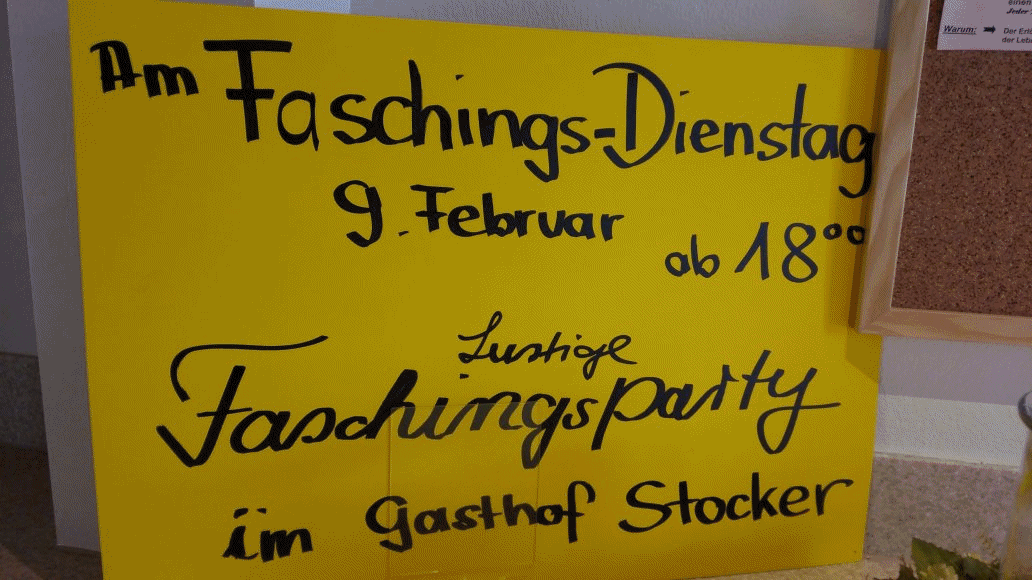 Am Faschings-Dienstag
9. Februar
ab 18⁰⁰
Lustige
Faschingsparty
im Gasthof Stocker
einen
Jeder
Warum: ➡ Der
der